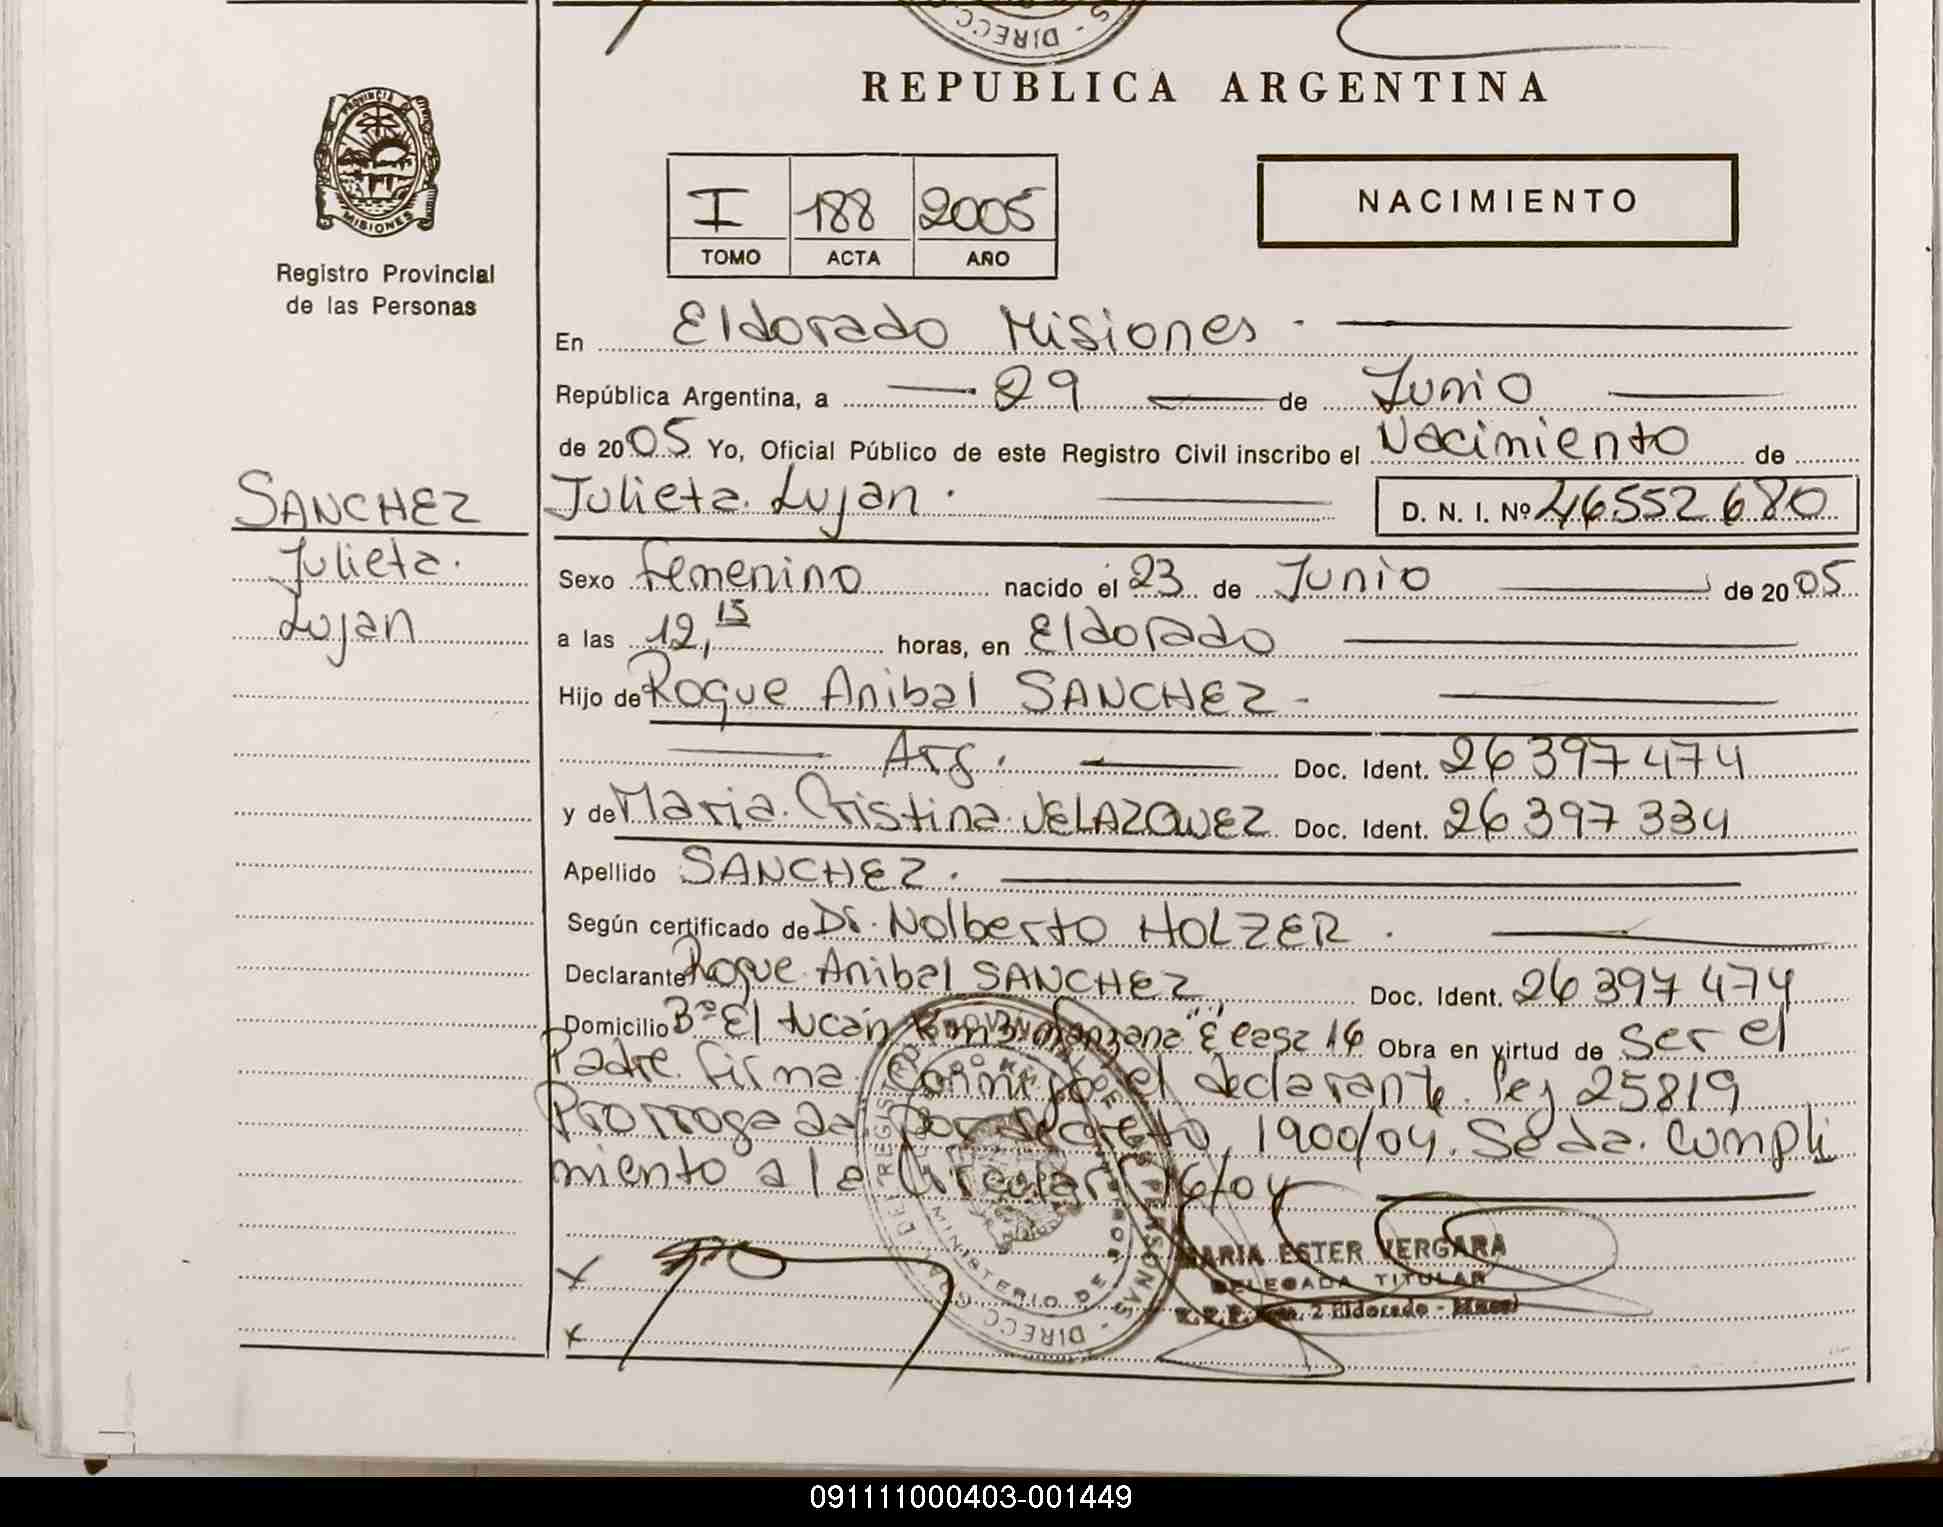 REPUBLICA ARGENTINA
PROVINCIA DE MISIONES
Registro Provincial
de las Personas
I 188 2005
TOMO ACTA AÑO
NACIMIENTO
En Eldorado Misiones.
República Argentina, a 29 de Junio
de 2005 Yo, Oficial Público de este Registro Civil inscribo el Nacimiento de
SANCHEZ
Julieta
Lujan
Julieta Lujan. D. N. I. Nº 46552680
Sexo femenino nacido el 23 de Junio de 2005
a las 12,15 horas, en Eldorado
Hijo de Roque Anibal SANCHEZ
Arg. Doc. Ident. 26397474
y de Maria Cristina VELAZQUEZ Doc. Ident. 26397334
Apellido SANCHEZ.
Según certificado de Dr. Nolberto HOLZER.
Declarante Roque Anibal SANCHEZ Doc. Ident. 26397474
Domicilio Bº El tucán Km 3 manzana "E" casa 16 Obra en virtud de ser el
Padre. firma Conmigo el declarante. Ley 25819
Prorrogada por decreto 1900/04. Se da Cumpli
miento a la Circular 16/04
MARIA ESTER VERGARA
DELEGADA TITULAR
2 Eldorado - Mnes
MINISTERIO DE
091111000403-001449